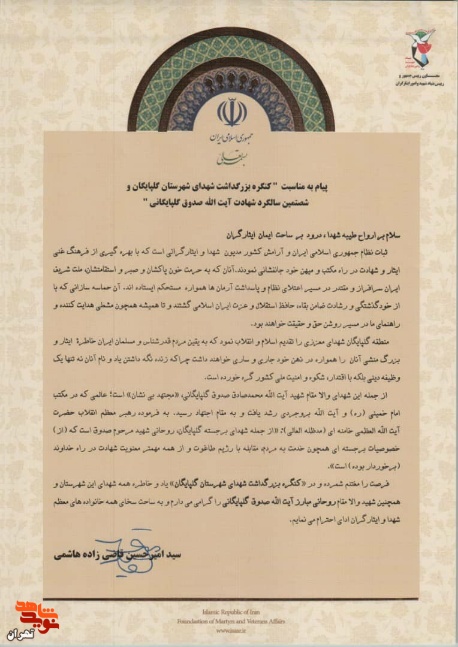 معاون رئیس جمهور و
رئیس بنیاد شهید و امور ایثارگران
جمهوری اسلامی ایران
بسمه تعالی
پیام به مناسبت " کنگره بزرگداشت شهدای شهرستان گلپایگان و
شصتمین سالگرد شهادت آیت الله صدوق گلپایگانی "
سلام بر ارواح طیبه شهداء، درود بر ساحت ایمان ایثارگران
ثبات نظام جمهوری اسلامی ایران و آرامش کشور مدیون شهدا و ایثارگرانی است که با بهره گیری از فرهنگ غنی
ایثار و شهادت در راه مکتب و میهن خود جانفشانی نمودند. آنان که به حرمت خون پاکشان و صبر و استقامتشان، ملت شریف
ایران سرافراز و مقتدر در مسیر اعتلای نظام و پاسداشت آرمان ها همواره مستحکم ایستاده اند. آن حماسه سازانی که با
از خودگذشتگی و رشادت ضامن بقاء، حافظ استقلال و عزت ایران اسلامی گشتند و تا همیشه همچون مشعلی هدایت کننده و
راهنمای ما در مسیر روشن حق و حقیقت خواهند بود.
منطقه گلپایگان شهدای معززی را تقدیم اسلام و انقلاب نمود که به یقین مردم قدرشناس و مسلمان ایران خاطرهٔ ایثار و
بزرگ منشی آنان را همواره در ذهن خود جاری و ساری خواهند داشت چراکه زنده نگه داشتن یاد و نام آنان نه تنها یک
وظیفه دینی بلکه با اقتدار، شکوه و امنیت ملی کشور گره خورده است.
از جمله این شهدای والا مقام شهید آیت الله محمدصادق صدوق گلپایگانی، «مجتهد بی نشان» است؛ عالمی که در مکتب
امام خمینی (ره) و آیت الله بروجردی رشد یافت و به مقام اجتهاد رسید. به فرموده رهبر معظم انقلاب حضرت
آیت الله العظمی خامنه ای (مدظله العالی): «از جمله شهدای برجسته گلپایگان، روحانی شهید مرحوم صدوق است که (از)
خصوصیات برجسته ای همچون خدمت به مردم، مقابله با رژیم طاغوت و از همه مهمتر معنویت شهادت در راه خداوند
(برخوردار بوده) است».
فرصت را مغتنم شمرده و در «کنگره بزرگداشت شهدای شهرستان گلپایگان» یاد و خاطره همه شهدای این شهرستان و
همچنین شهید والا مقام روحانی مبارز آیت الله صدوق گلپایگانی را گرامی می دارم و به ساحت سخای همه خانواده های معظم
شهدا و ایثارگران ادای احترام می نمایم.
سید امیرحسین قاضی زاده هاشمی
Islamic Republic of Iran
Foundation of Martyrs and Veterans Affairs
www.isaar.ir
نوید شاهد
تهران